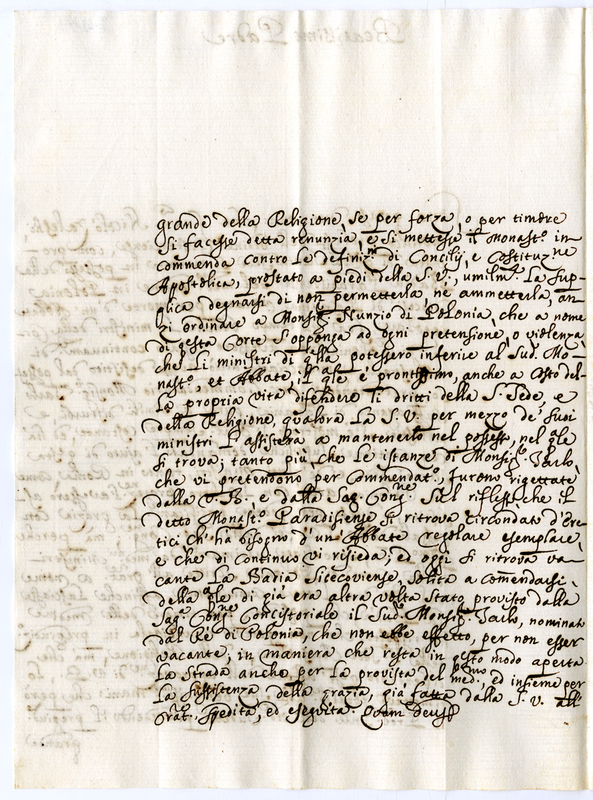 grande della Religione, se per forza, o per timore
si facesse detta renunzia, e si mettesse il Monast.o in
commenda contro le definiz.ni di Concilij, e Costituz.ne
Apostolica, prostato a piedi della S. V., umilm.te La sup-
plica degnarsi di non permetterla, nè ammetterla, an
zi ordinare a Monsig.r Nunzio di Polonia, che a nome
di questa Corte s'opponga ad ogni pretensione, o violenza,
che li ministri di q.lla potessero inferire al Sud.o Mo-
nast.o, et Abbate, il q.le è prontissimo, anche a costo del-
la propria vita difendere li dritti della S. Sede, e
della Religione, qualora La S. V. per mezzo de' suoi
ministri l'assisterà a mantenerlo nel possesso, nel q.le
si trova; tanto più che le istanze di Monsig.r
che vi pretendono per Commendat.o, furono rigettate
dalla V. B. e dalla Sag. Cong.ne Sul rifless.o che il
detto Monast.o Paradisiense si ritrova circondato d'Ere
tici ch'ha bisogno d'un Abbate regolare esemplare,
e che di continuo vi risieda; ed oggi si ritrova va
cante La Badia Siceoviense, solita a comendarsi,
della q.le di già era altra volta stato provisto dalla
Sag.a Cong.ne Concistoriale il Sud.o Monsig.r nominato
dal Rè di Polonia, che non ebbe effetto, per non esser
vacante, in maniera che resta in q.esto modo aperta
La strada anche per La provista del med.mo, ed insieme per
La sussistenza della grazia, già fatta dalla S. V. all'
Orat. spedita, ed eseguita. Quam Deus